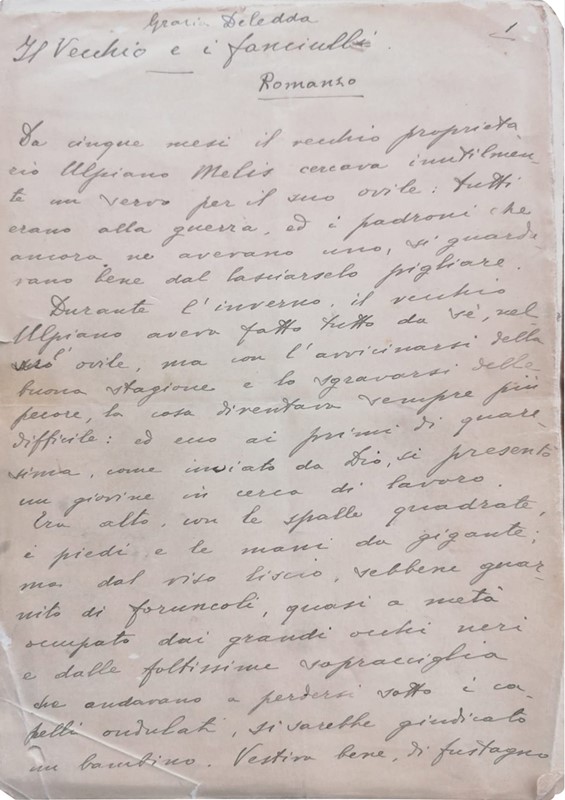 Grazia Deledda
1
Il Vecchio e i fanciulli.
Romanzo
Da cinque mesi il vecchio proprietà
rio Ulpiano Melis cercava inutilmen-
te un servo per il suo ovile: tutti
erano alla guerra, ed i padroni che
ancora ne avevano uno, si guarda
vano bene dal lasciarselo pigliare.
Durante l'inverno, il vecchio
Ulpiano aveva fatto tutto da sè, nel
ovile, ma con l'avvicinarsi della
buona stagione e lo sgravarsi delle
pecore, la cosa diventava sempre più
difficile: ed ecco ai primi di quare-
sima, come inviato da Dio, si presentò
un giovine in cerca di lavoro.
Era alto, con le spalle quadrate,
i piedi e le mani da gigante;
ma dal viso liscio, sebbene guar-
nito di foruncoli, quasi a metà
occupato dai grandi occhi neri
e dalle foltissime sopracciglia
che andavano a perdersi sotto i ca-
pelli ondulati, si sarebbe giudicato
un bambino. Vestiva bene, di fustagno